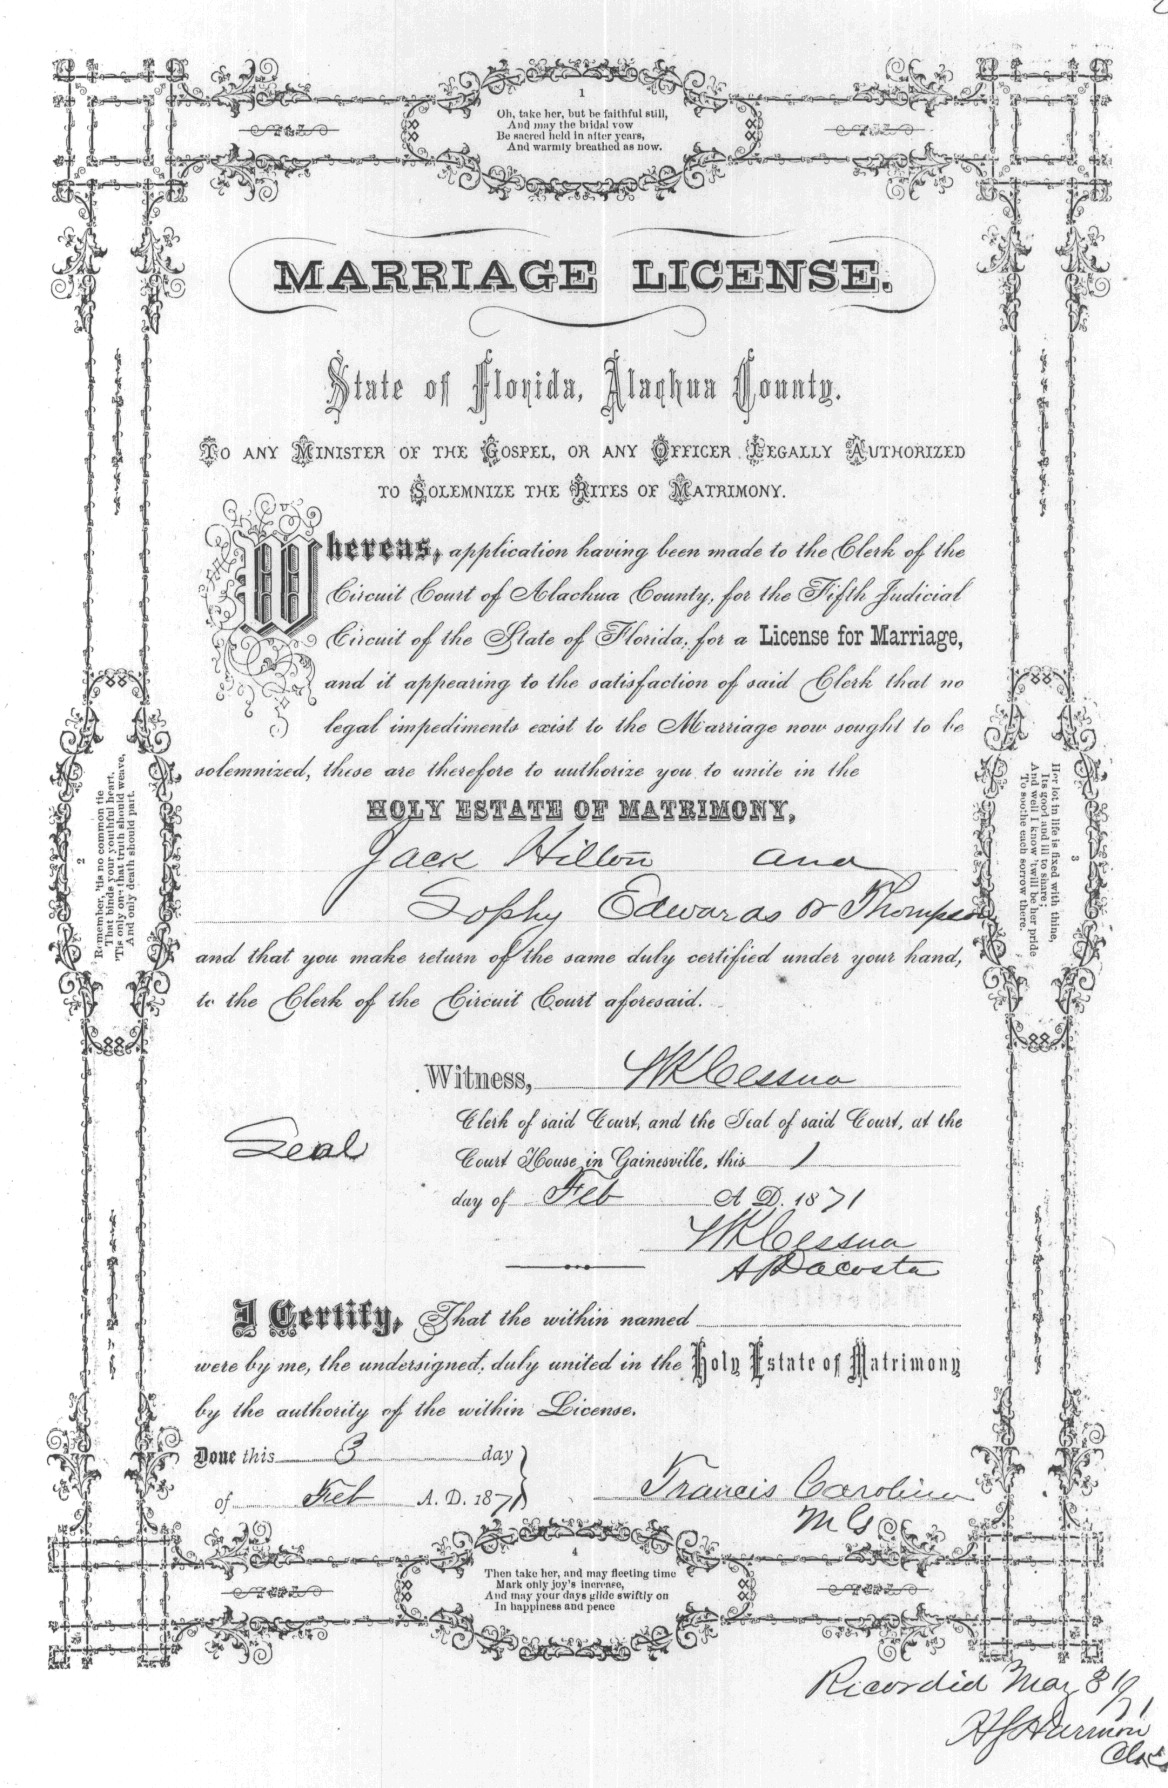 1
Oh, take her, but be faithful still,
And may the bridal vow
Be sacred held in after years,
And warmly breathed as now.
MARRIAGE LICENSE.
State of Florida, Alachua County.
TO ANY MINISTER OF THE GOSPEL, OR ANY OFFICER LEGALLY AUTHORIZED
TO SOLEMNIZE THE RITES OF MATRIMONY.
Whereas, application having been made to the Clerk of the
Circuit Court of Alachua County, for the Fifth Judicial
Circuit of the State of Florida, for a License for Marriage,
and it appearing to the satisfaction of said Clerk that no
legal impediments exist to the Marriage now sought to be
solemnized, these are therefore to authorize you to unite in the
HOLY ESTATE OF MATRIMONY,
Jack Hilton and
Sophy Edwards or Thompson
and that you make return of the same duly certified under your hand,
to the Clerk of the Circuit Court aforesaid.
2
Remember, 'tis no common tie
That binds your youthful heart,
'Tis only one that truth should weave,
And only death should part.
3
Her lot in life is fixed with thine,
Its good and ill to share;
And well I know 'twill be her pride
To soothe each sorrow there.
Witness, WK Cessna
Clerk of said Court, and the Seal of said Court, at the
Seal
Court House in Gainesville, this 1
day of Feb A. D. 1871
WK Cessna
A Dacosta
I Certify, That the within named
were by me, the undersigned, duly united in the Holy Estate of Matrimony
by the authority of the within License.
Done this 3 day
of Feb A. D. 1871
Francis Carolina
M G
4
Then take her, and may fleeting time
Mark only joy's increase,
And may your days glide swiftly on
In happiness and peace
Recorded May
Harmon
Clerk